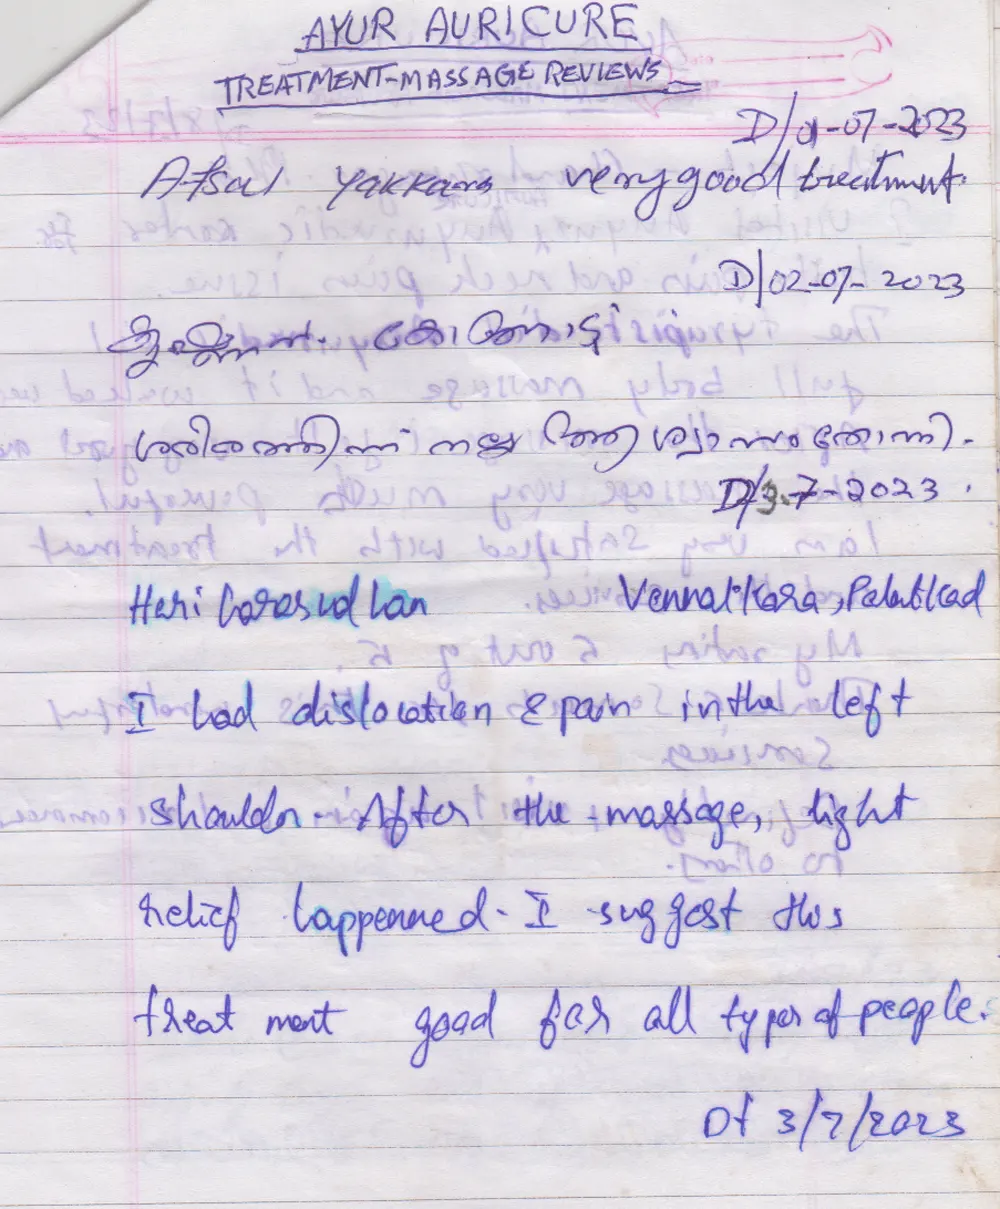 AYUR AURICURE
TREATMENT-MASSAGE REVIEWS
D/01-07-2023
Afsal Yakkara very good treatment.
D/02-07-2023
കൊന്നോട്ട്
ശരീരത്തിന് നല്ല ആശ്വാസം തോന്നി.
D/3.7-2023.
Hari Vennakkara, Palakkad
I had dislocation & pain in the left
shoulder. After the massage, light
relief happenned. I suggest this
treatment good for all types of people.
Dt 3/7/2023